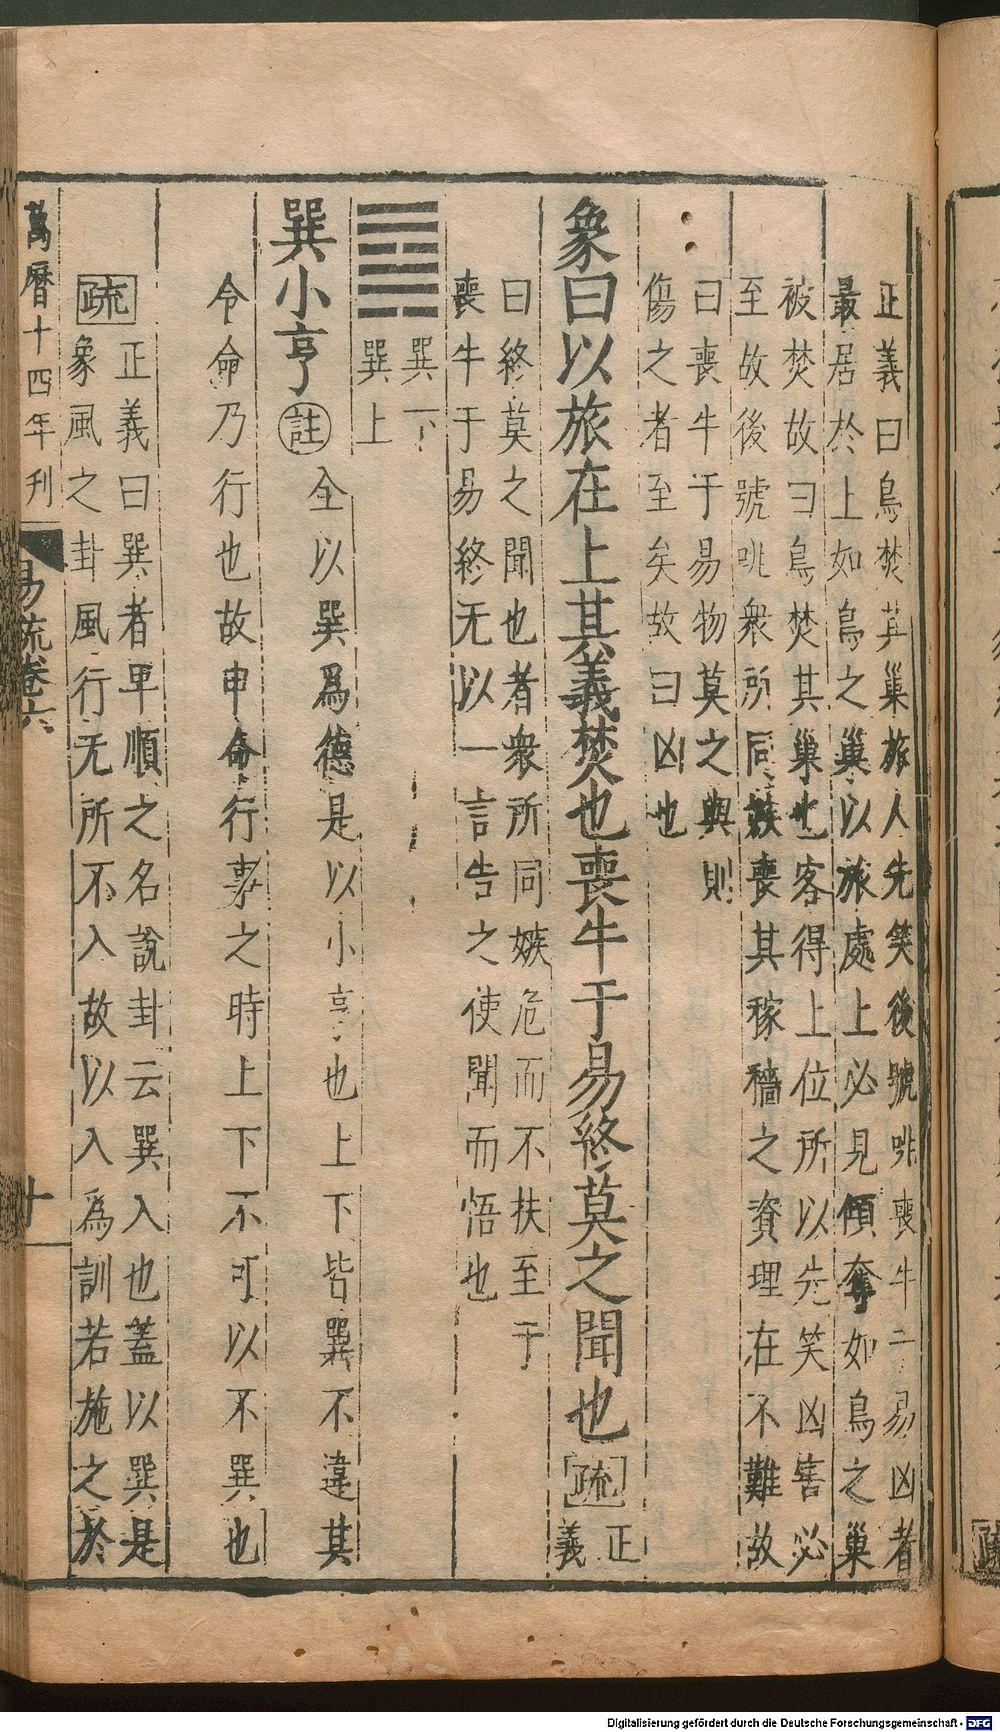 正義曰鳥焚其巢旅人先笑後號咷喪牛于易凶者
最居於上如鳥之巢以旅處上必見傾奪如鳥之巢
被焚故曰鳥焚其巢也客得上位所以先笑凶害必
至故後號咷衆所同嫉喪其稼穡之資理在不難故
曰喪牛于易物莫之與則
傷之者至矣故曰凶也
象曰以旅在上其義焚也喪牛于易終莫之聞也
疏
正
義
曰終莫之聞也者衆所同嫉危而不扶至于
喪牛于易終无以一言告之使聞而悟也
巽下
巽上
巽小亨
註
全以巽爲德是以小亨也上下皆巽不違其
令命乃行也故申命行事之時上下不可以不巽也
疏
正義曰巽者卑順之名說卦云巽入也蓋以巽是
象風之卦風行无所不入故以入爲訓若施之於
萬曆十四年刋
易疏卷六
十
Digitalisierung gefördert durch die Deutsche Forschungsgemeinschaft - DFG